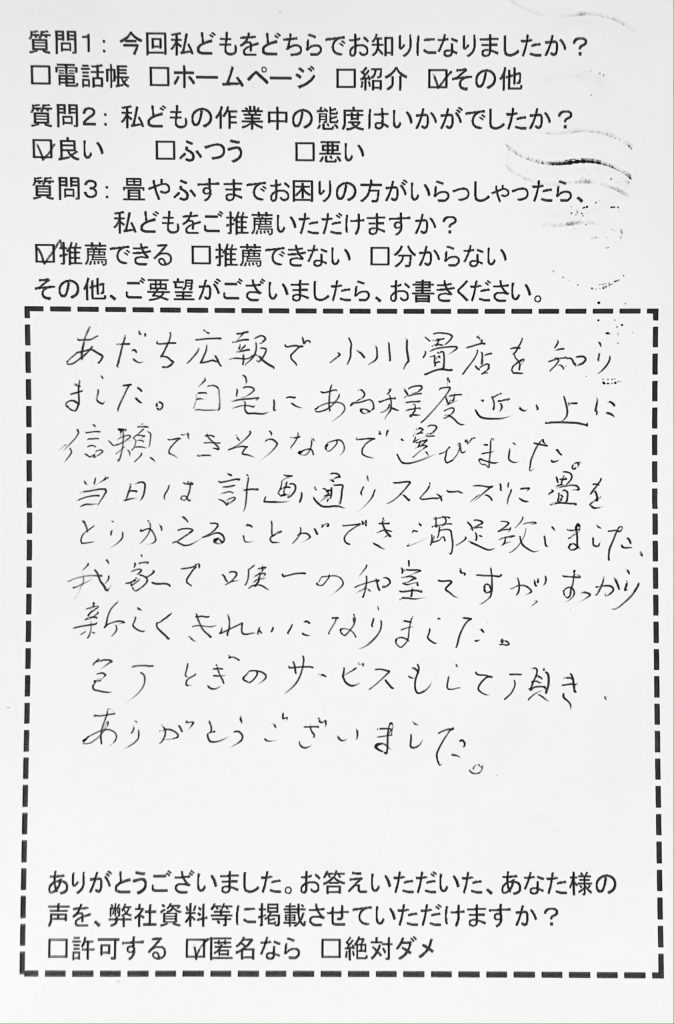 質問1：今回私どもをどちらでお知りになりましたか？
□電話帳 □ホームページ □紹介 ☑その他
質問2：私どもの作業中の態度はいかがでしたか？
☑良い □ふつう □悪い
質問3：畳やふすまでお困りの方がいらっしゃったら、
私どもをご推薦いただけますか？
☑推薦できる □推薦できない □分からない
その他、ご要望がございましたら、お書きください。
あだち広報で小川畳店を知り
ました。自宅にある程度近い上に
信頼できそうなので選びました。
当日は計画通りスムーズに畳を
とりかえることができ満足致しました、
我家で唯一の和室ですが、すっかり
新しくきれいになりました。
包丁とぎのサービスもして頂き、
ありがとうございました。
ありがとうございました。お答えいただいた、あなた様の
声を、弊社資料等に掲載させていただけますか？
□許可する ☑匿名なら □絶対ダメ